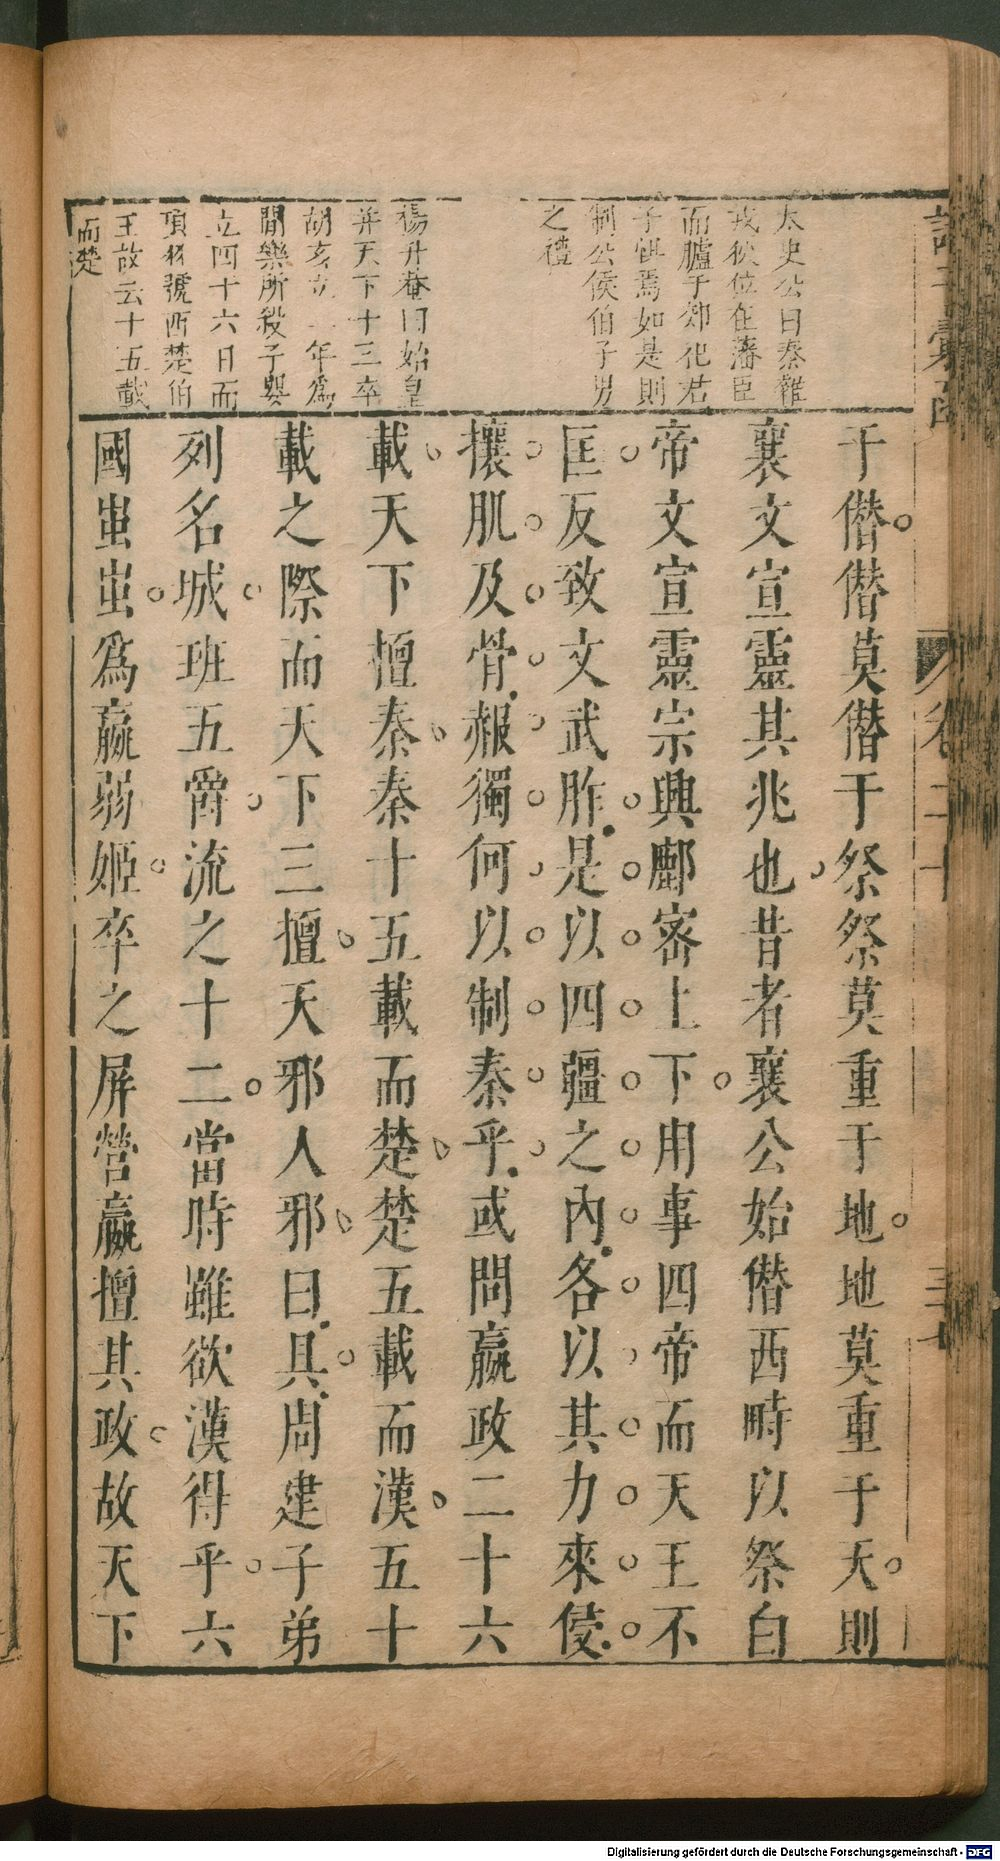 太史公曰秦雜
戎狄位在藩臣
而臚于郊祀君
子懼焉如是則
制公侯伯子男
之禮
楊升菴曰始皇
并天下十三卒
胡亥立 年爲
閻樂所殺子嬰
立四十六日而
項籍號西楚伯
王故云十五載
而楚
于僭僭莫僭于祭祭莫重于地地莫重于天則
襄文宣靈其兆也昔者襄公始僭西畤以祭白
帝文宣靈宗興鄜密上下用事四帝而天王不
匡反致文武胙是以四疆之內各以其力來侵
攘肌及骨赧獨何以制秦乎或問嬴政二十六
載天下擅秦秦十五載而楚楚五載而漢五十
載之際而天下三擅天邪人邪曰具周建子弟
列名城班五爵流之十二當時雖欲漢得乎六
國蚩蚩爲嬴弱姬卒之屏營嬴擅其政故天下
卷二十
三十七
Digitalisierung gefördert durch die Deutsche Forschungsgemeinschaft - DFG